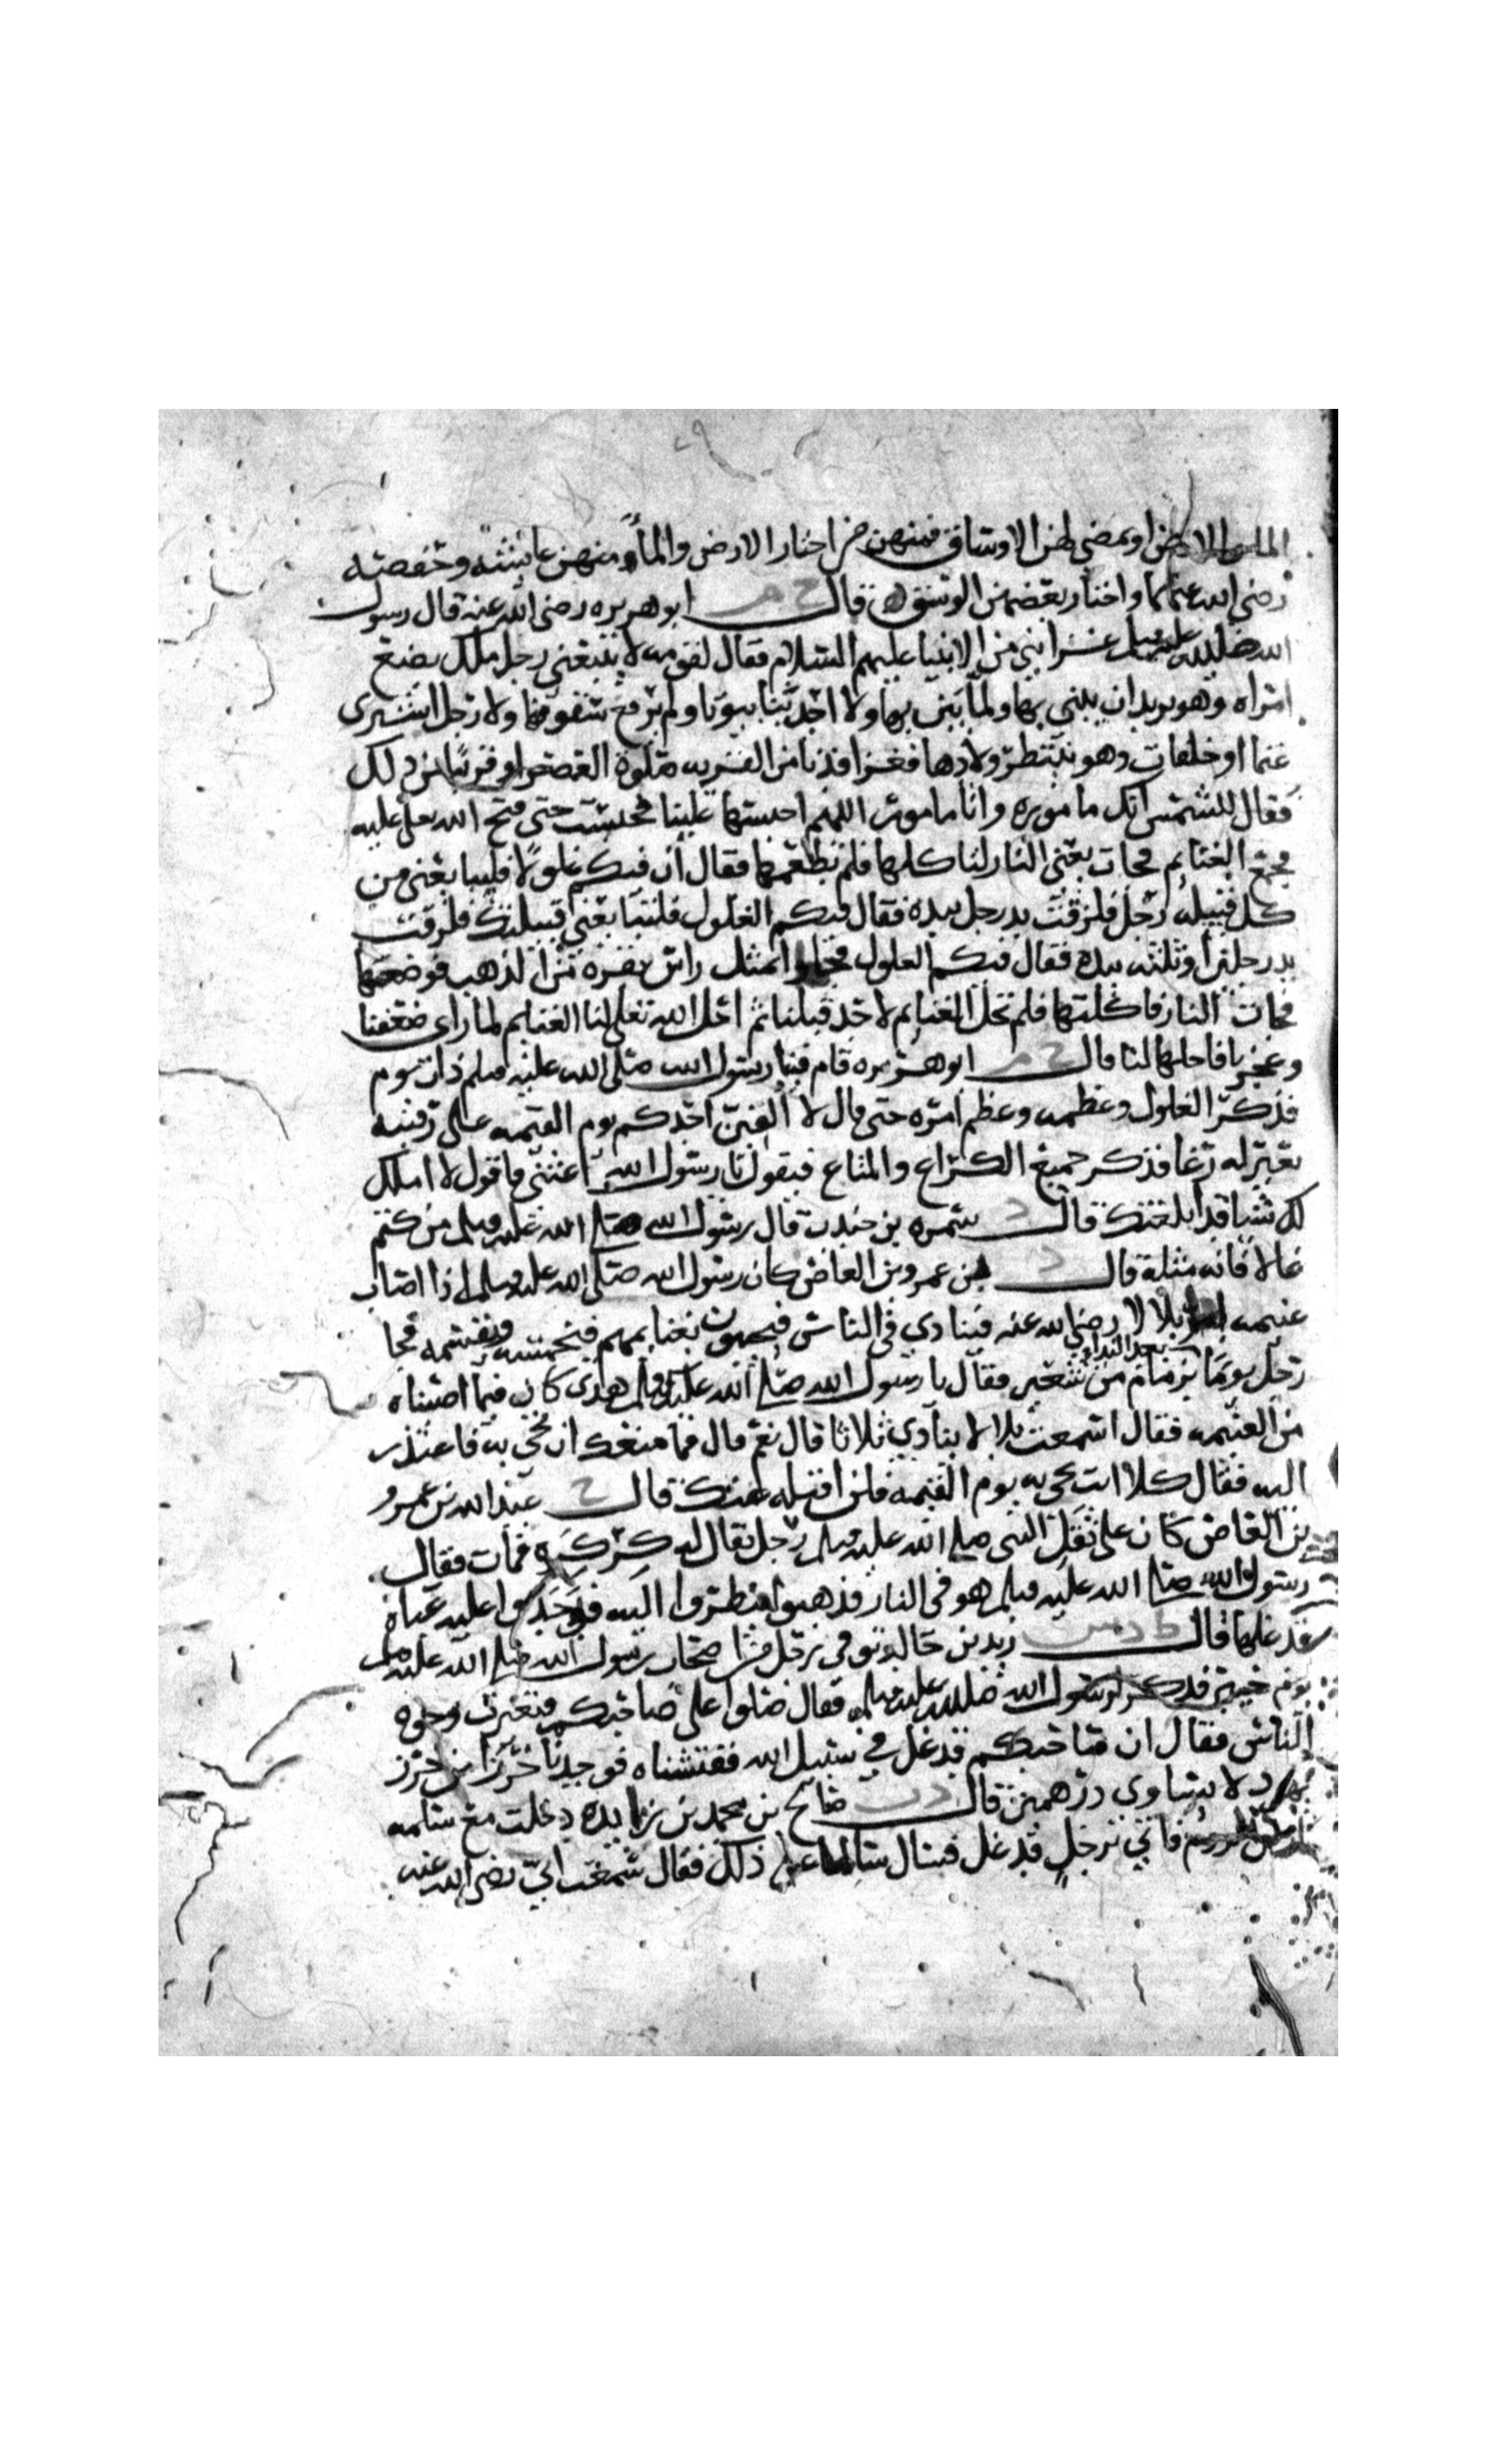 الماء والارض او يمضي لهن الاوساق فمنهن من اختار الارض والماء ومنهن عايشه وحفصه
رضي الله عنهما واختار بعضهن الوسق قال خ م ابو هريره رضي الله عنه قال رسول
الله صلى الله عليه وسلم غزا نبي من الانبيا عليهم السلام فقال لقومه لا يتبعني رجل ملك بضع
امراه وهو يريد ان يبني بها ولما يبن بها ولا احد بنا بيوتا ولم يرفع سقوفها ولا رجل اشترى
غنما او خلفات وهو ينتظر ولادها فغزا فدنا من القريه صلوة العصر او قريبا من ذلك
فقال للشمس انك ماموره وانا مامور اللهم احبسها علينا فحبست حتى فتح الله تعالى عليه
فجمع الغنايم فجات يعني النار لتاكلها فلم تطعمها فقال ان فيكم غلولا فليبايعني من
كل قبيله رجل فلزقت يد رجل بيده فقال فيكم الغلول فلتبايعني قبيلتك فلزقت
يد رجلين او ثلثه بيده فقال فيكم الغلول فجاوا بمثل راس بقره من الذهب فوضعها
فجات النار فاكلتها فلم تحل الغنايم لاحد قبلنا ثم احل الله تعالى لنا الغنايم لما راى ضعفنا
وعجزنا فاحلها لنا قال خ م ابو هريره قام فينا رسول الله صلى الله عليه وسلم ذات يوم
فذكر الغلول وعظمه وعظم امره حتى قال لا الفين احدكم يوم القيمه على رقبته
بعير له رغا فذكر جميع الكراع والمتاع فيقول يا رسول الله اغثني فاقول لا املك
لك شيا قد ابلغتك قال د سمره بن جندب قال رسول الله صلى الله عليه وسلم من كتم
غالا فانه مثله قال د بن عمرو بن العاص كان رسول الله صلى الله عليه وسلم اذا اصاب
غنيمه امر بلالا رضي الله عنه فينادي في الناس فيجيون بغنايمهم فيخمسه ويقسمه فجا
رجل يوما بعد النداء بزمام من شعر فقال يا رسول الله صلى الله عليه وسلم هذا كان فيما اصبناه
من الغنيمه فقال اسمعت بلالا ينادي ثلاثا قال نعم قال فما منعك ان تجي به فاعتذر
اليه فقال كلا انت تجي به يوم القيمه فلن اقبله عنك قال خ عبد الله بن عمرو
بن العاص كان على ثقل النبي صلى الله عليه وسلم رجل يقال له كركره فمات فقال
رسول الله صلى الله عليه وسلم هو في النار فذهبوا ينظروا اليه فوجدوا عليه عباه
قد غلها قال ط د س زيد بن خالد توفي رجل من اصحاب رسول الله صلى الله عليه وسلم
يوم خيبر فذكر لرسول الله صلى الله عليه وسلم فقال صلوا على صاحبكم فتغيرت وجوه
الناس فقال ان صاحبكم قد غل في سبيل الله ففتشناه فوجدنا خرزا من خرز
يهود لا يساوي درهمين قال د ت صالح بن محمد بن زايده دخلت مع مسلمه
ارض الروم فاتي برجل قد غل فسال سالما عن ذلك فقال سمعت ابي رضي الله عنه